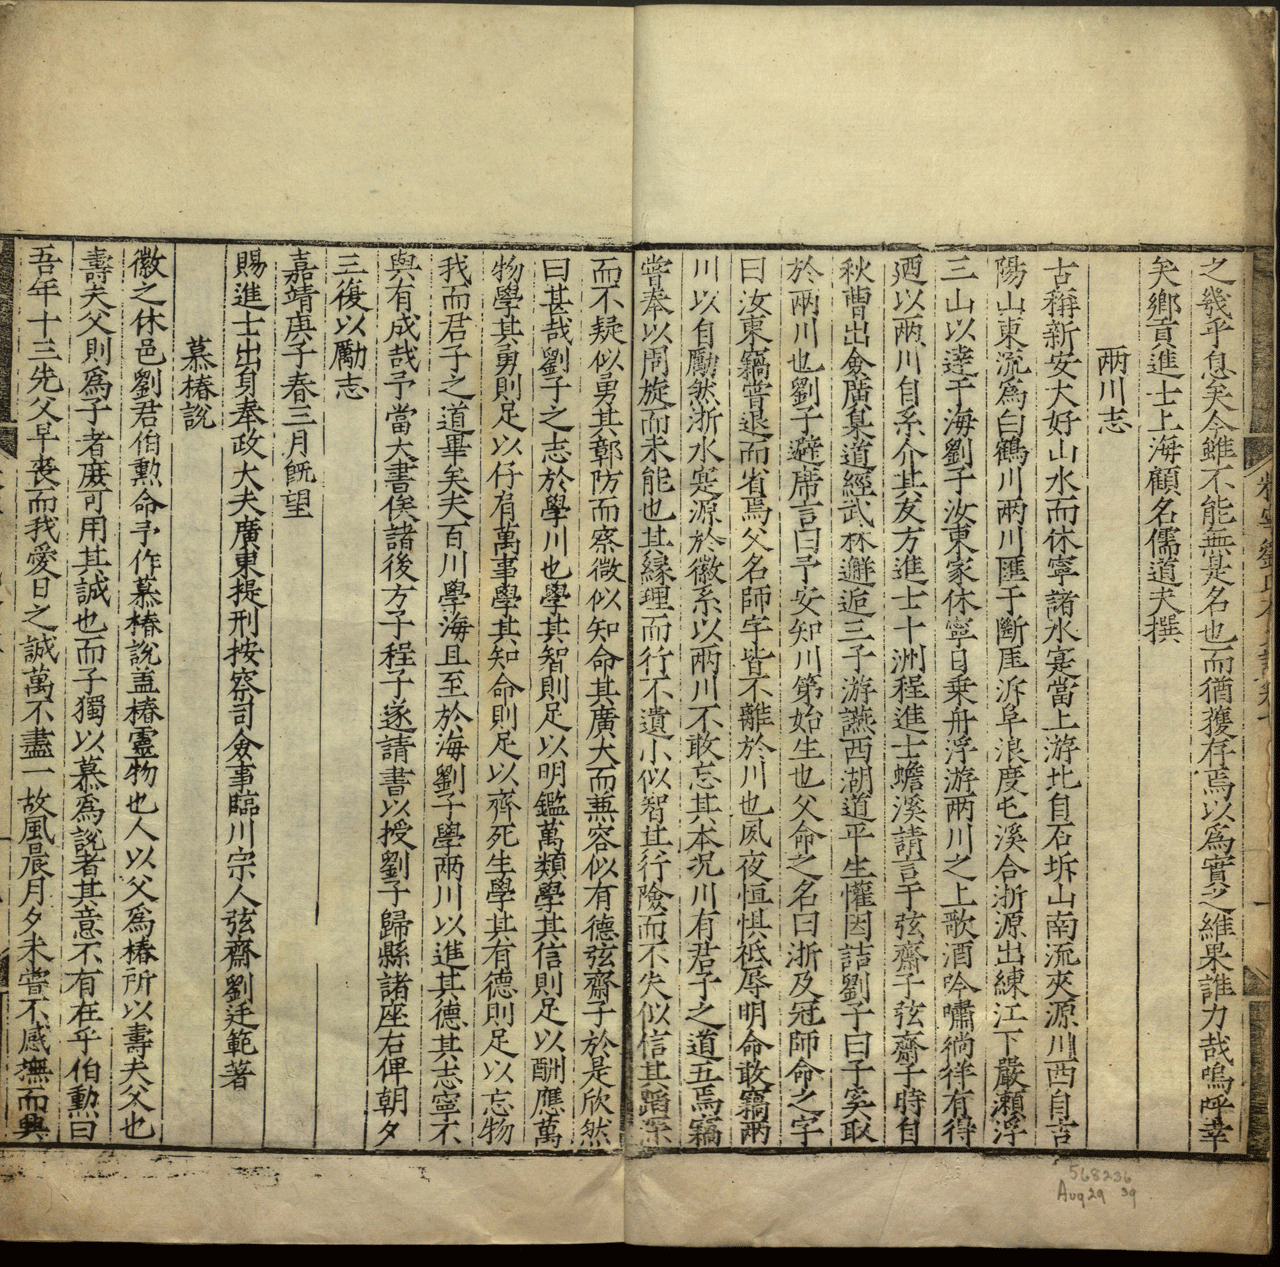 之幾乎息矣今雖不能無是名也而猶獲存焉以爲實之維果誰力哉嗚呼幸
矣鄉貢進士上海顧名儒道夫撰
兩川志
古稱新安大好山水而休寧諸水寔當上游北自石㘰山南流夾源川西自吉
陽山東流爲白鶴川兩川匯于斷厓泝阜浪度屯溪合浙源出練江下嚴瀨浮
三山以達于海劉子汝東家休寧日乗舟浮游兩川之上歌酒吟嘯徜徉有得
廼以兩川自系介其友方進士十洲程進士蟾溪請言于弦齋子弦齋子時自
秋曹出僉廣臬道經武林邂逅三子游讌西湖道平生懽因詰劉子曰子奚取
於兩川也劉子避席言曰予安知川第始生也父命之名曰浙及冠師命之字
曰汝東竊嘗退而省焉父名師字皆不離於川也夙夜恒惧祗辱明命敢竊兩
川以自勵然浙水寔源於徽系以兩川不敢忘其本况川有君子之道五焉竊
嘗奉以周旋而未能也其縁理而行不遺小似智其行險而不失似信其蹈深
而不疑似勇其鄣防而察微似知命其廣大而兼容似有德弦齋子於是欣然
曰甚哉劉子之志於學川也學其智則足以明鑑萬類學其信則足以酬應萬
物學其勇則足以仔肩萬事學其知命則足以齊死生學其有德則足以忘物
我而君子之道畢矣夫百川學海且至於海劉子學兩川以進其德其志寧不
與有成哉予當大書俟諸後方子程子遂請書以授劉子歸縣諸座右俾朝夕
三復以勵志
嘉靖庚子春三月旣望
賜進士出身奉政大夫廣東提刑按察司僉事臨川宗人弦齋劉廷範著
慕椿說
徽之休邑劉君伯勳命予作慕椿說蓋椿靈物也人以父爲椿所以壽夫父也
壽夫父則爲子者庶可用其誠也而子獨以慕爲說者其意不有在乎伯勳曰
吾年十三先父早喪而我愛日之誠萬不盡一故風晨月夕未嘗不感撫而興
568236
Aug 29 39